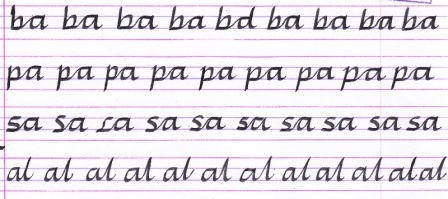 ba ba ba ba bd ba ba ba ba
pa pa pa pa pa pa pa pa pa
sa sa sa sa sa sa sa sa sa sa
al al al al al al al al al al al al